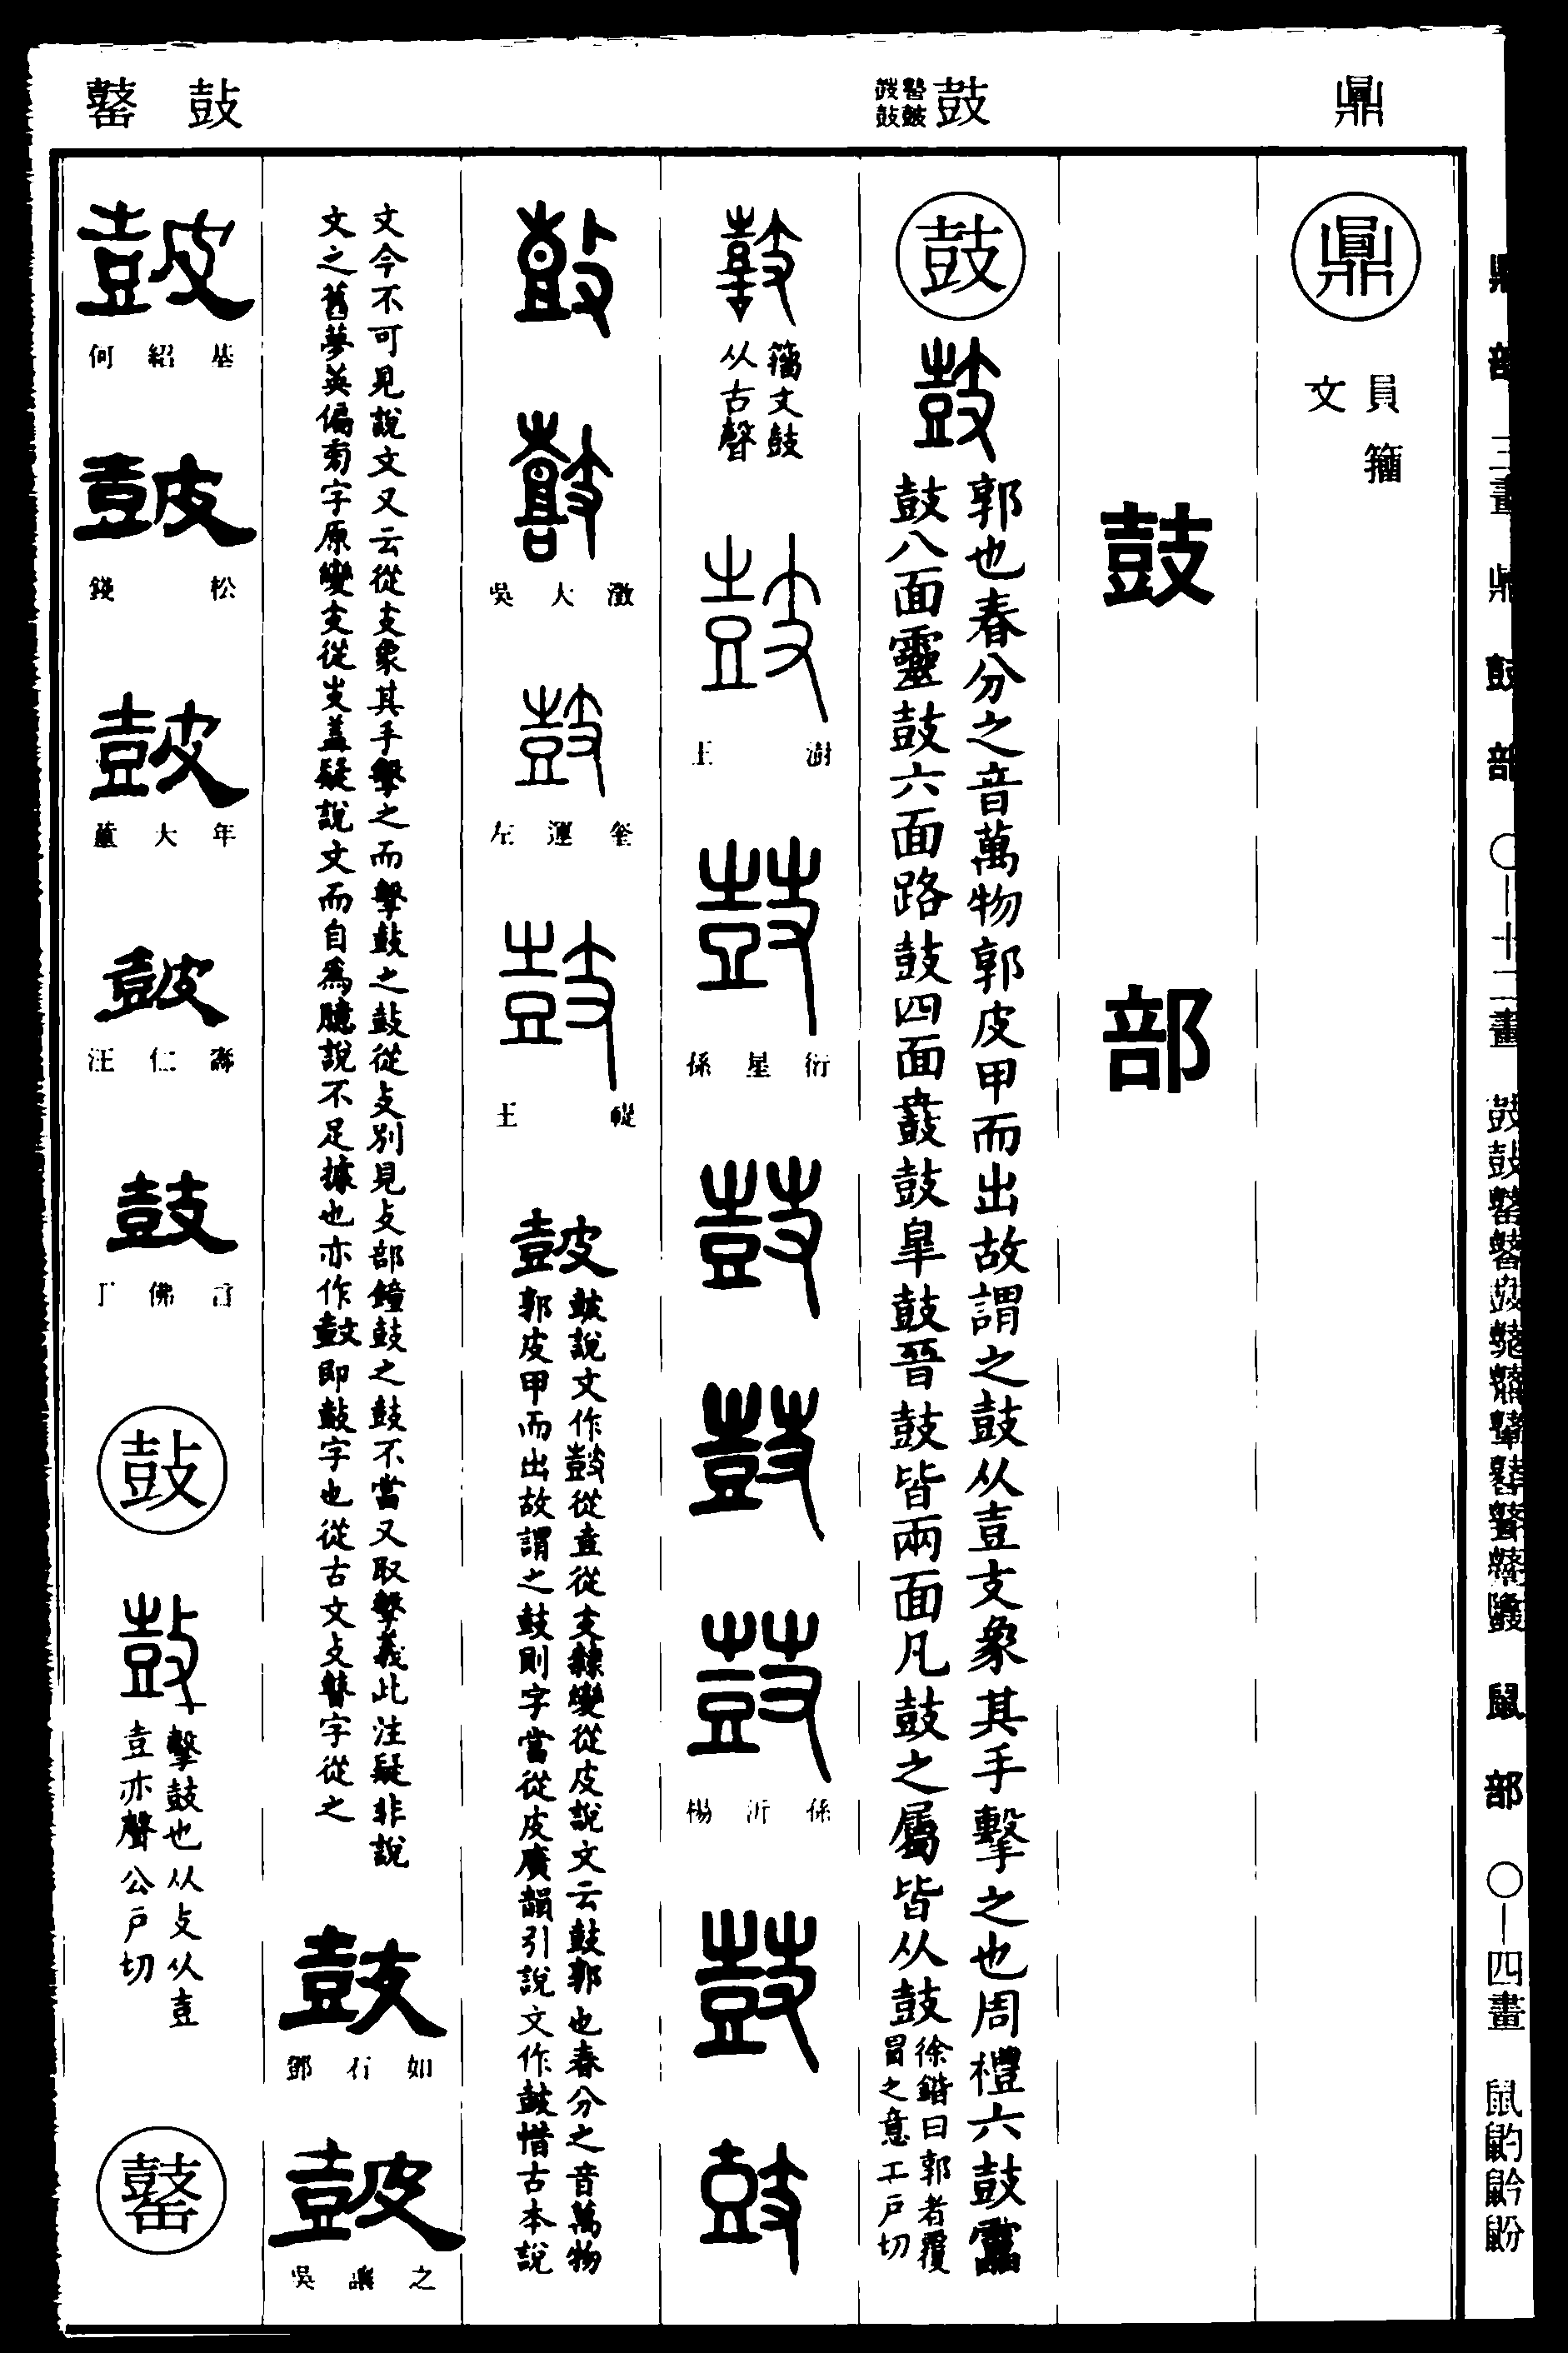 鼎
鼓
鼔
鼛
鼎
員籀
文
鼓
部
鼓
鼓
郭也春分之音萬物郭皮甲而出故謂之鼓从壴支象其手擊之也周禮六鼓靁
鼓八面靈鼓六面路鼓四面鼖鼓皐鼓晉鼓皆兩面凡鼓之屬皆从鼓
徐鍇曰郭者覆
冒之意工戶切
籀文鼓
从古聲
王澍
孫星衍
楊沂孫
吳大澂
左運奎
王禔
皷
皷說文作鼓從壴從支隸變從皮說文云鼓郭也春分之音萬物
郭皮甲而出故謂之鼓則字當從皮廣韻引說文作皷惜古本說
文今不可見說文又云從支象其手擊之而擊鼓之鼓從攴別見攴部鐘鼓之鼓不當又取擊義此注疑非說
文之舊夢英偏旁字原變支從攴蓋疑說文而自爲臆說不足據也亦作鼓即鼔字也從古文攴瞽字從之
鼓
鄧石如
皷
吳讓之
皷
何紹基
皷
錢松
皷
董大年
皷
汪仁壽
鼓
丁佛言
鼔
鼔
擊鼓也从攴从壴
壴亦聲公戶切
鼛
鼎部
三畫
鼎
鼓部
〇—十二畫
鼠部
〇—四畫